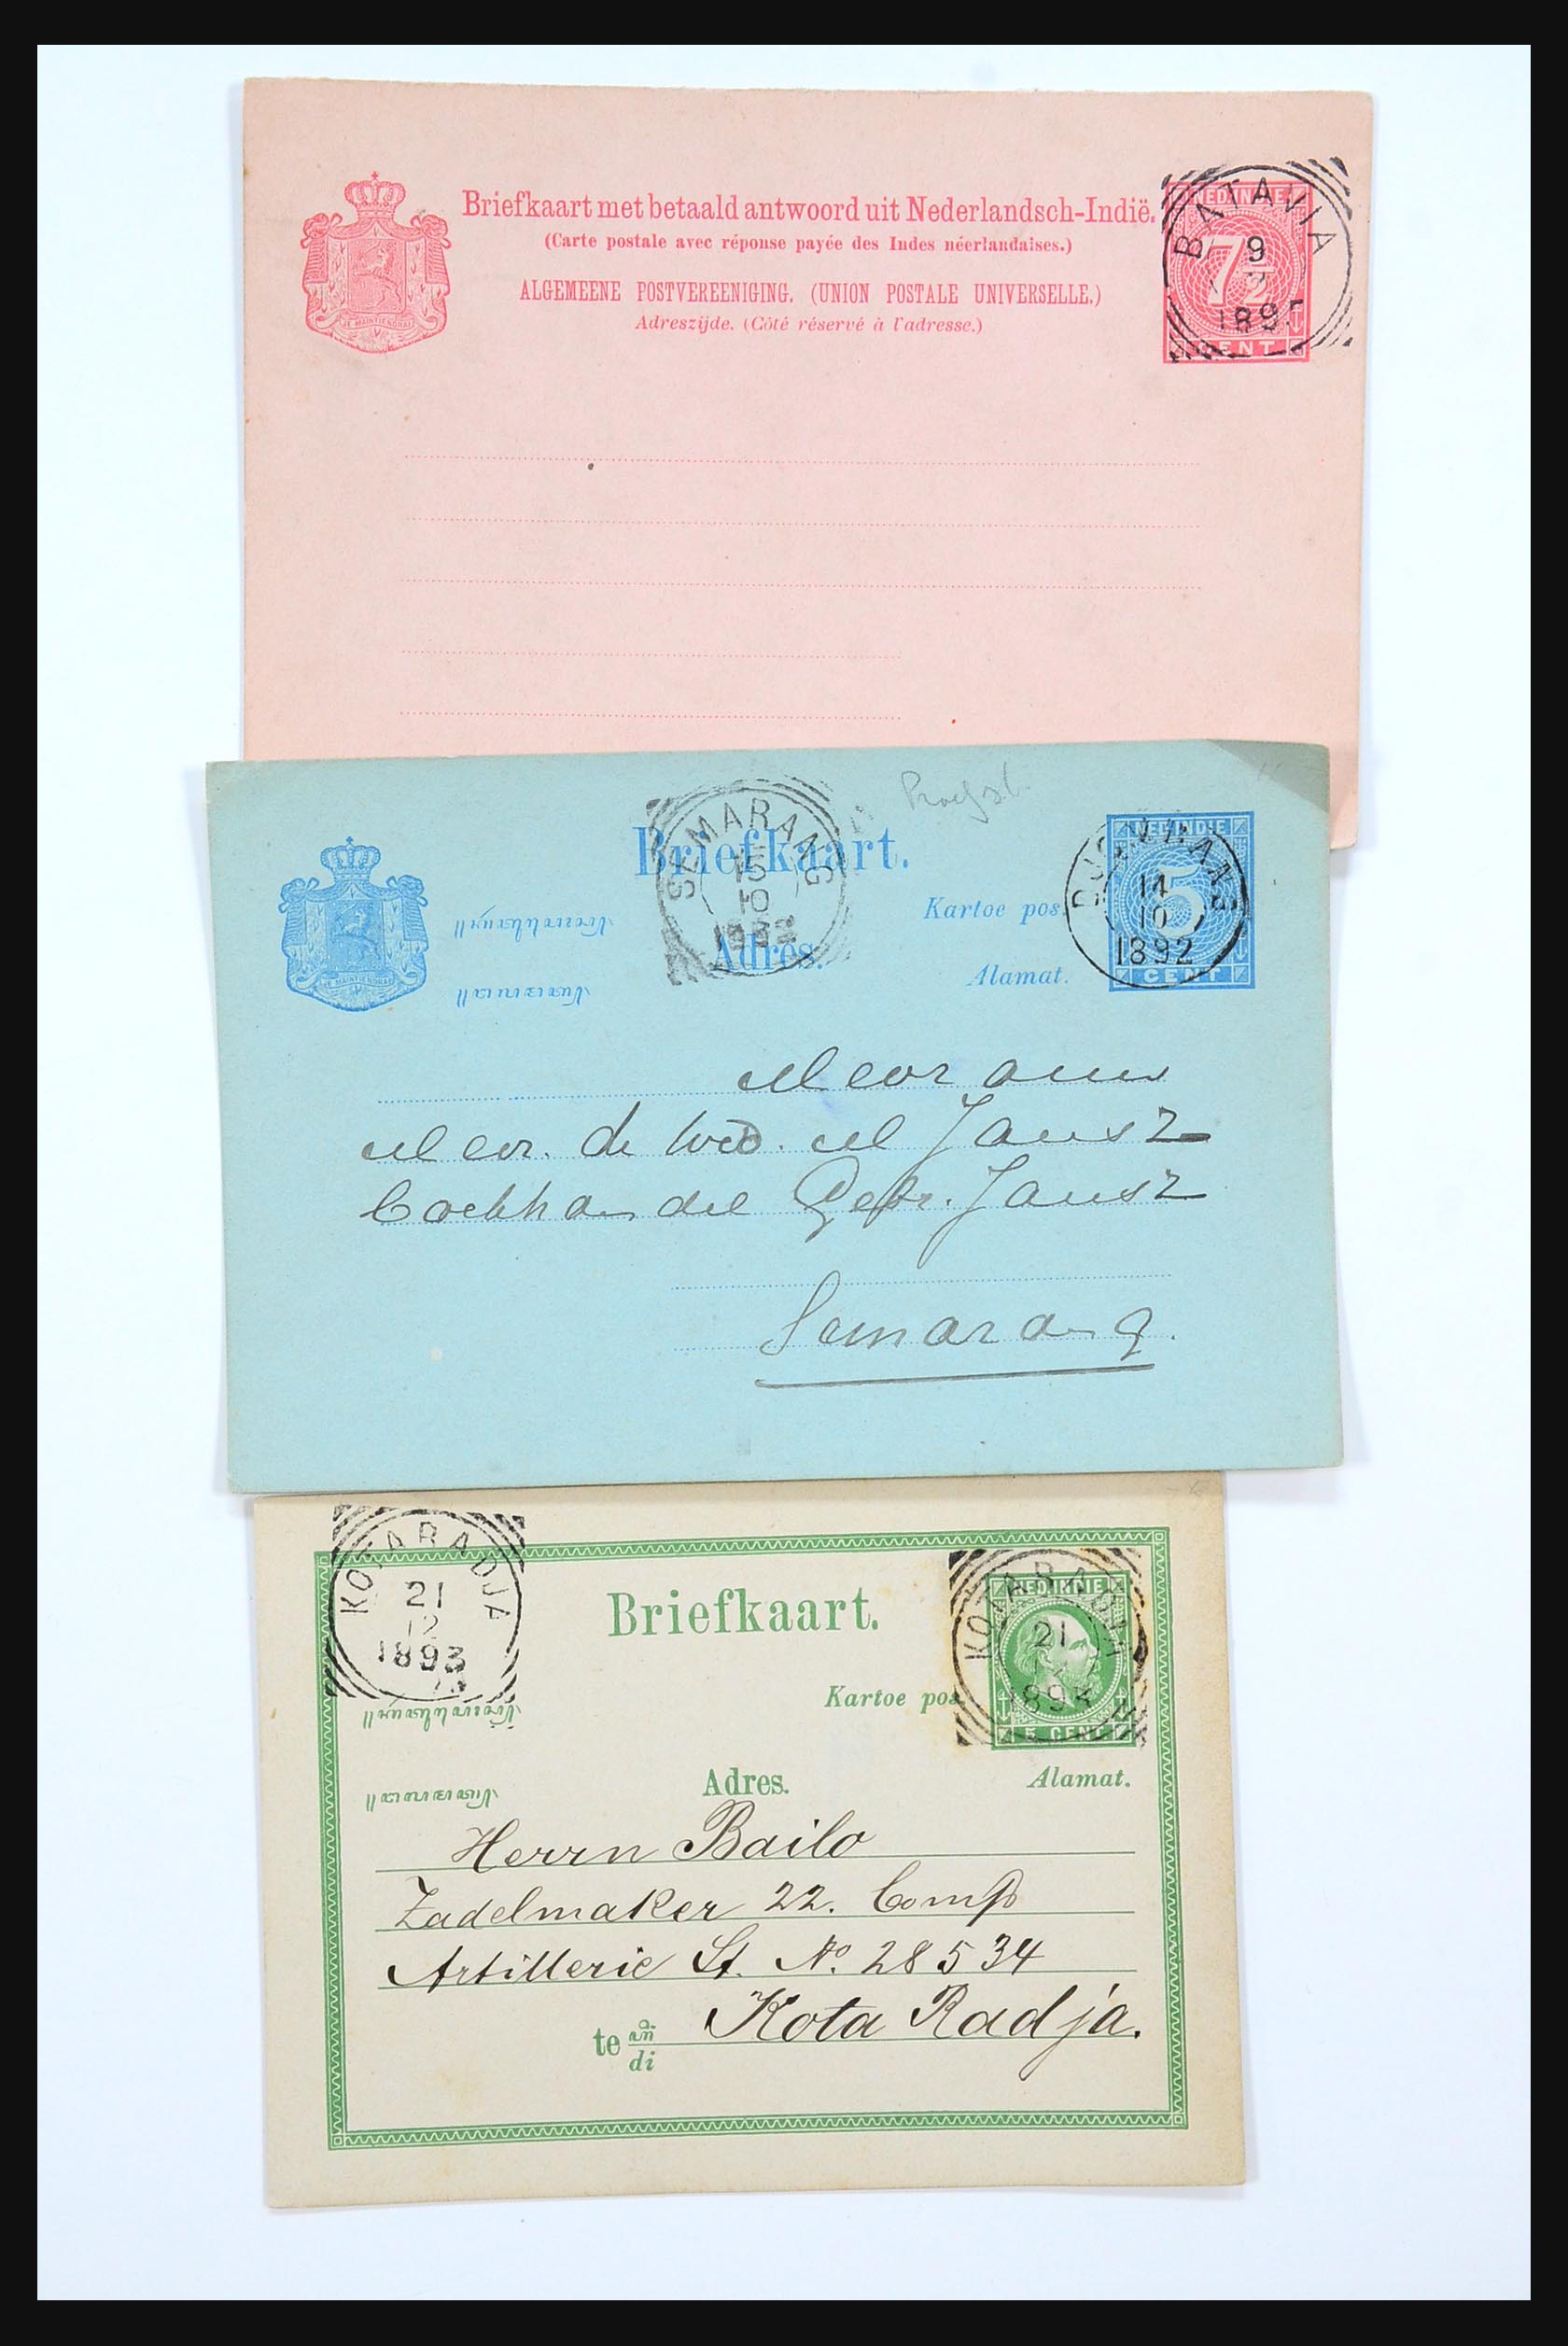 Briefkaart met betaald antwoord uit Nederlandsch-Indië.
(Carte postale avec réponse payée des Indes néerlandaises.)
ALGEMEENE POSTVEREENIGING. (UNION POSTALE UNIVERSELLE.)
Adreszijde. (Côté réservé à l'adresse.)
JE MAINTIENDRAI
NED. INDIE
7½
CENT
BATAVIA
9
189
Briefkaart.
Kartoe pos.
Adres.
Alamat.
JE MAINTIENDRAI
SEMARANG
15
10
NED. INDIE
5
CENT
14
10
1892
Mevr. de Wed. M Jansz
Boekhandel Gebr. Jansz
Semarang.
KOTARADJA
21
12
1893
Briefkaart.
Kartoe pos
NED. INDIE
5 CENT
KOTARADJA
21
1893
Adres.
Alamat.
Herrn Bailo
Zadelmaker 22. Comp
Artillerie St. No. 28534
te di Kota Radja.